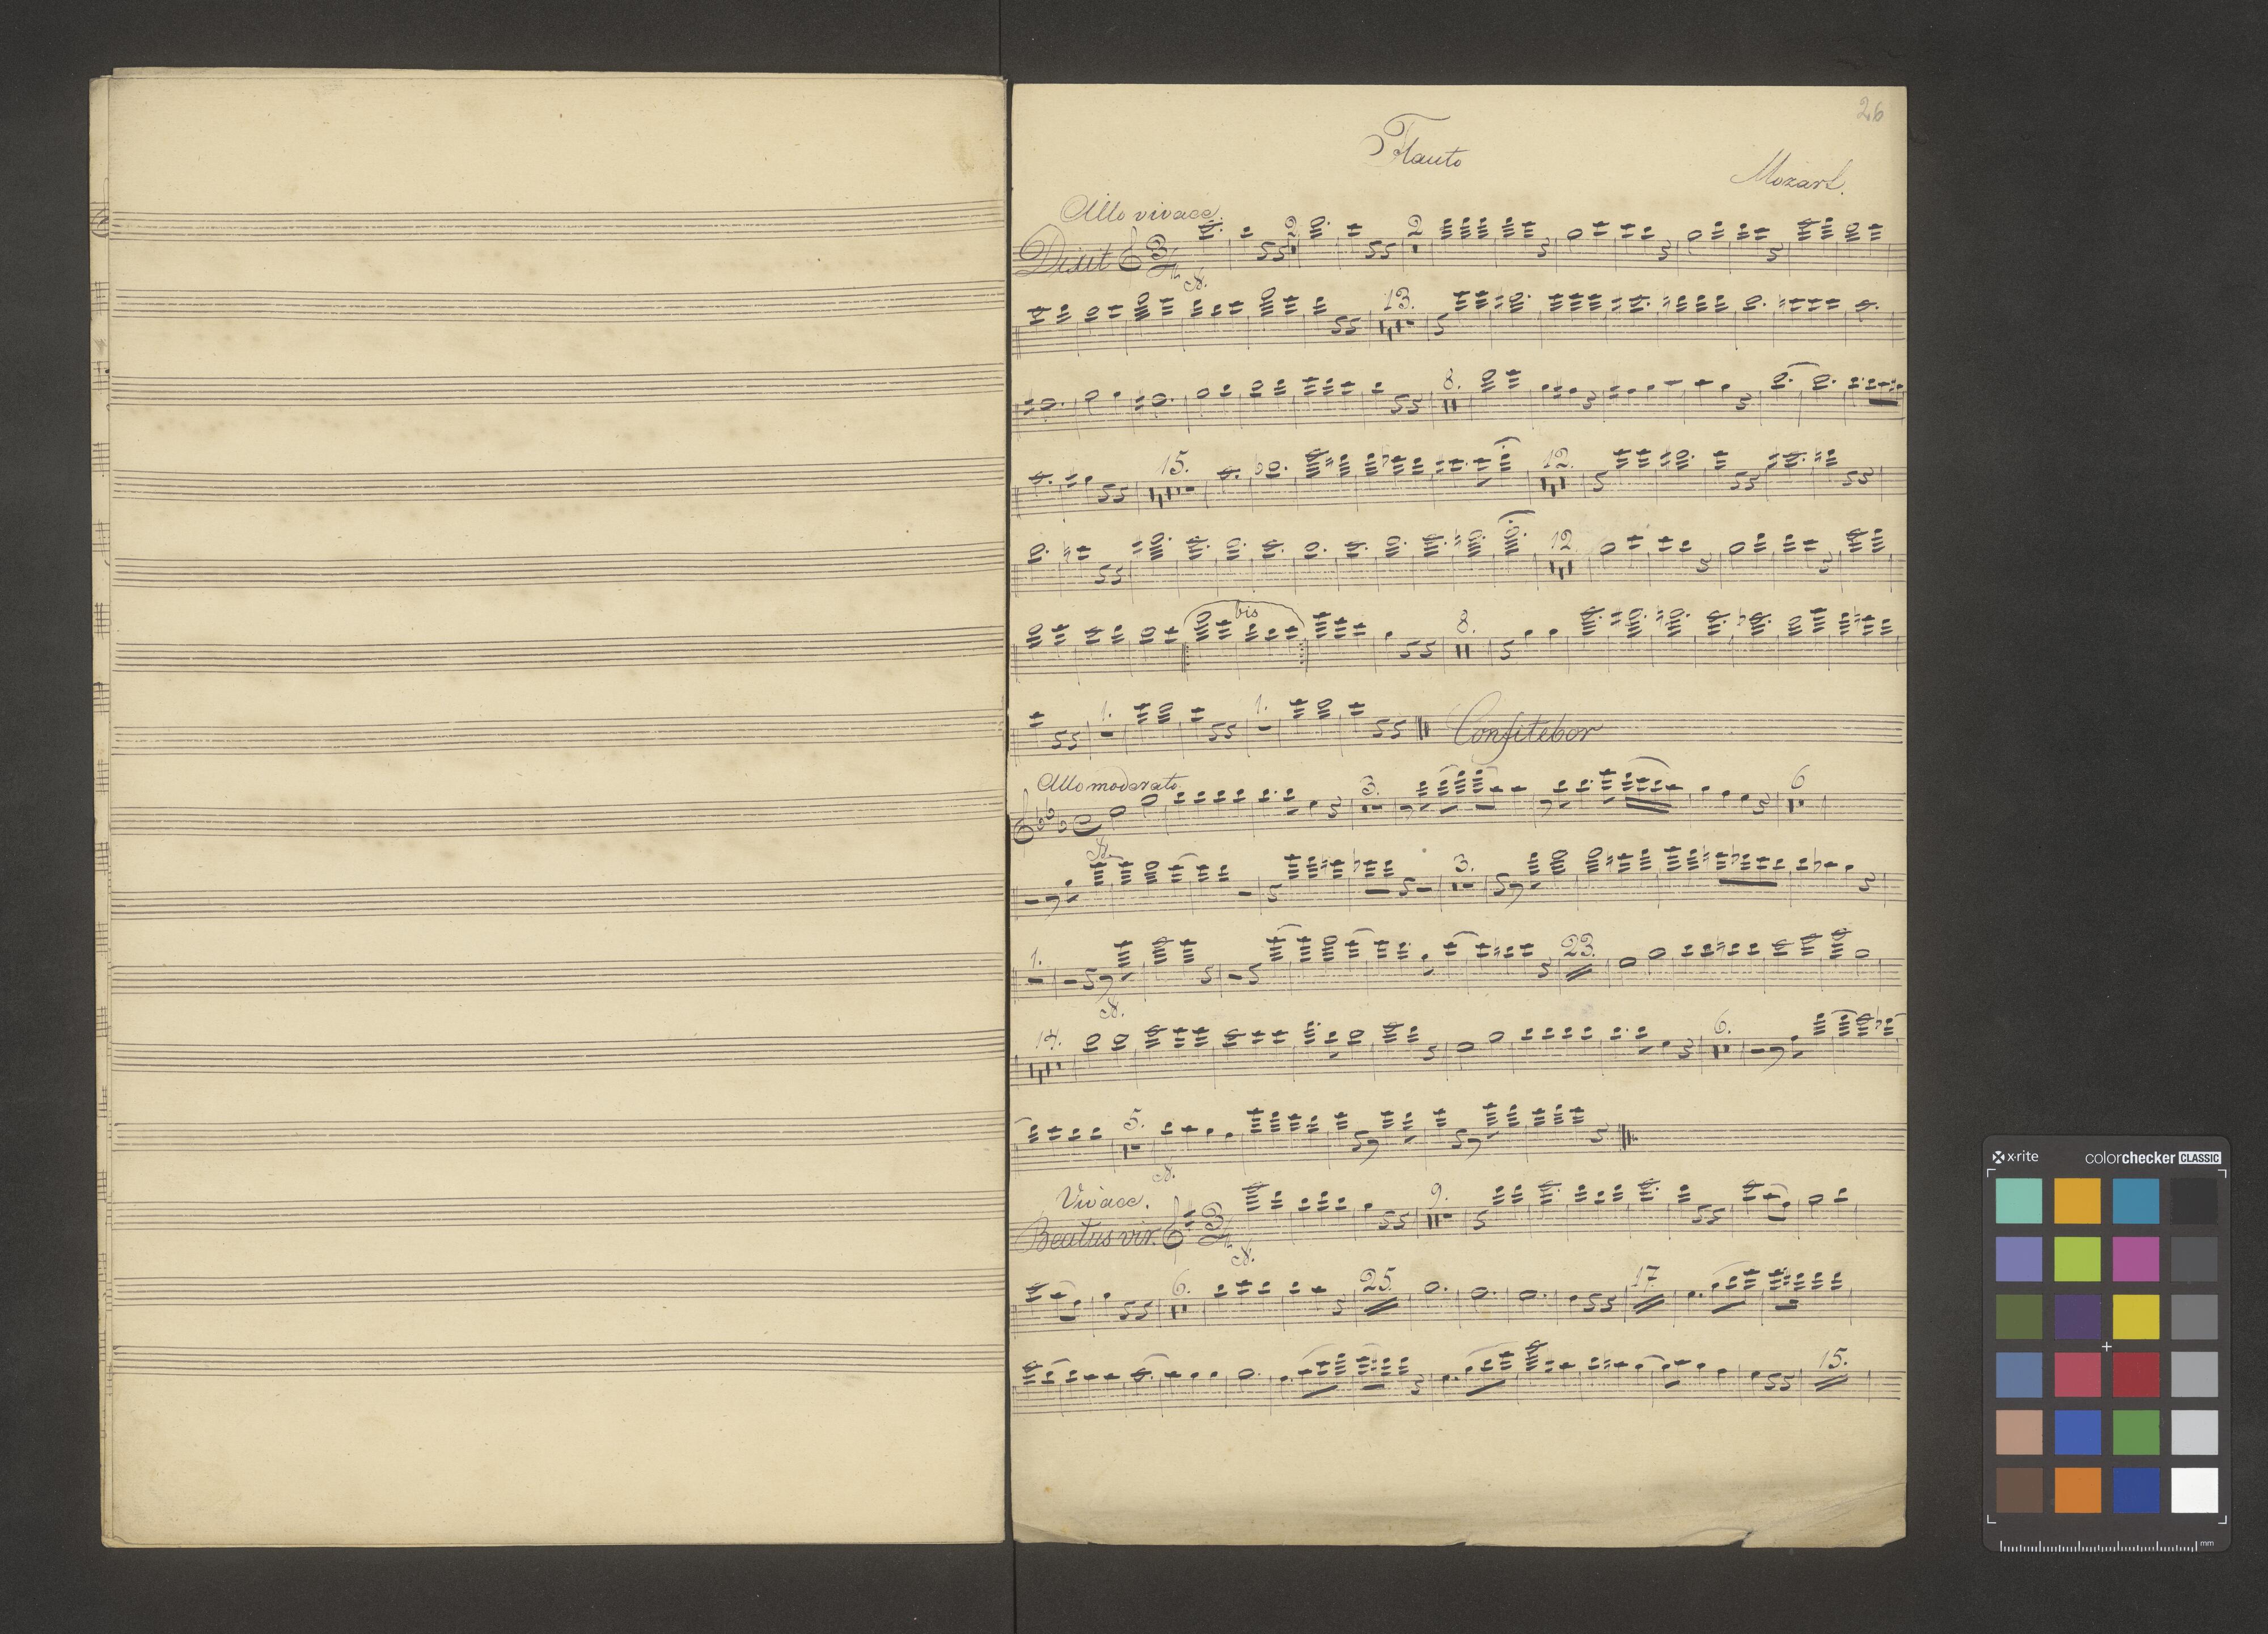 26
Flauto
Mozart.
Allo vivace.
Dixit 3/4 2 2
13.
8.
15. 12.
12.
bis 8.
1. 1. Confitebor
Allo moderato
3. 6
3.
1. 23.
14. 6.
5.
Vivace.
Beatus vir. 3/4 9.
6. 25. 17
15.
x·rite colorchecker CLASSIC
mm